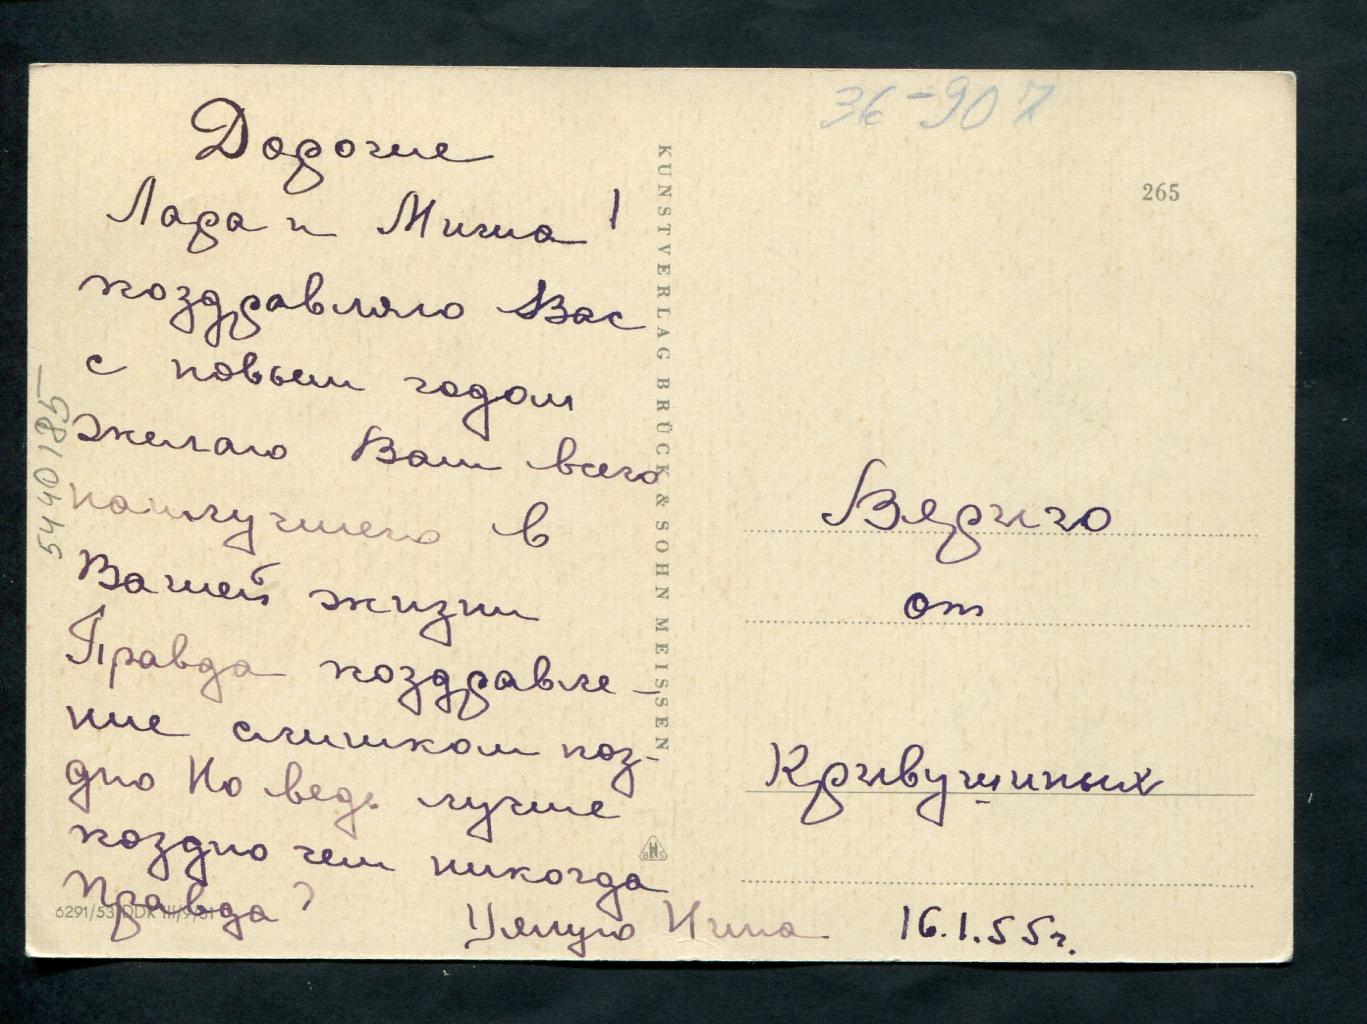 36-907
265
Дорогие
Лара и Миша!
поздравляю Вас
с новым годом
желаю Вам всего
наилучшего в
Вашей жизни
Правда поздравле-
ние слишком поз-
дно Но ведь лучше
поздно чем никогда
Правда?
Целую Нина 16.1.55г.
5440185
KUNSTVERLAG BRÜCK & SOHN MEISSEN
Вериго
от
Кривушиных
6291/53 DDR III/9/31